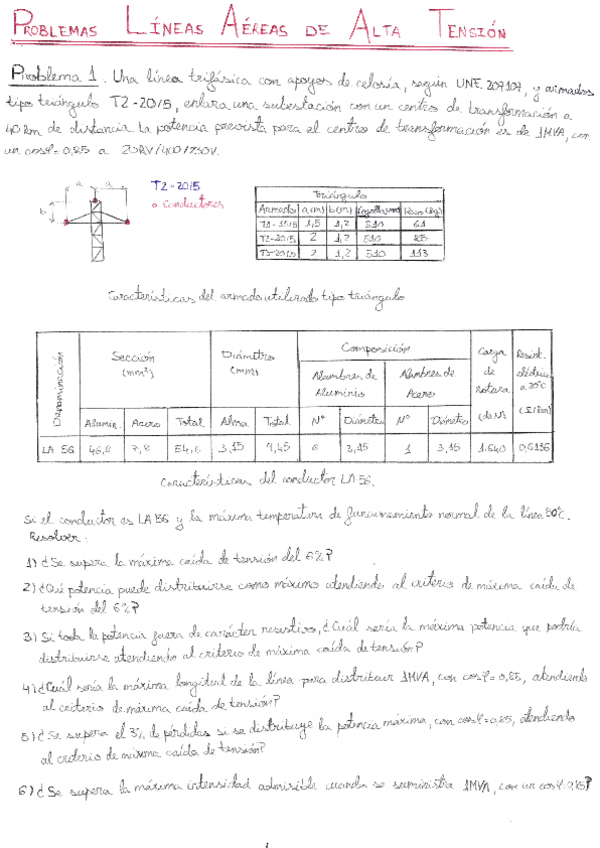 PROBLEMAS LÍNEAS AÉREAS DE ALTA TENSIÓN
Problema 1. Una línea trifásica con apoyos de celosía, según UNE 207107, y armados
tipo triángulo T2-20/5, enlaza una subestación con un centro de transformación a
40 km de distancia. La potencia prevista para el centro de transformación es de 1MVA, con
un cosφ=0,85 a 20KV/400/230V.
T2-20/5
o Conductores
a a
b
Triángulo
Armado a(m) b(m) Peso (kg)
T1-15/5 1,5 1,2 510 61
T2-20/5 2 1,2 510
T3-20/5 2 1,2 510 113
Características del armado utilizado tipo triángulo
Denominación Sección (mm²) Diámetro (mm) Composición Carga de Rotura (daN) Resist. eléctrica a 20°C (Ω/km)
Alambres de Aluminio Alambres de Acero
Alumin. Acero Total Alma Total Nº Diámetro Nº Diámetro
LA 56 46,8 7,8 54,6 3,15 9,45 6 3,15 1 3,15 1.640 0,6136
Características del conductor LA 56.
Si el conductor es LA 56 y la máxima temperatura de funcionamiento normal de la línea 50°C.
Resolver:
1) ¿Se supera la máxima caída de tensión del 6%?
2) ¿Qué potencia puede distribuirse como máximo atendiendo al criterio de máxima caída de
tensión del 6%?
3) Si toda la potencia fuera de carácter resistivo, ¿Cuál sería la máxima potencia que podría
distribuirse atendiendo al criterio de máxima caída de tensión?
4) ¿Cuál sería la máxima longitud de la línea para distribuir 1MVA, con cosφ=0,85, atendiendo
al criterio de máxima caída de tensión?
5) ¿Se supera el 3% de pérdidas si se distribuye la potencia máxima, con cosφ=0,85, atendiendo
al criterio de máxima caída de tensión?
6) ¿Se supera la máxima intensidad admisible cuando se suministra 1MVA, con un cosφ=0,85?
1